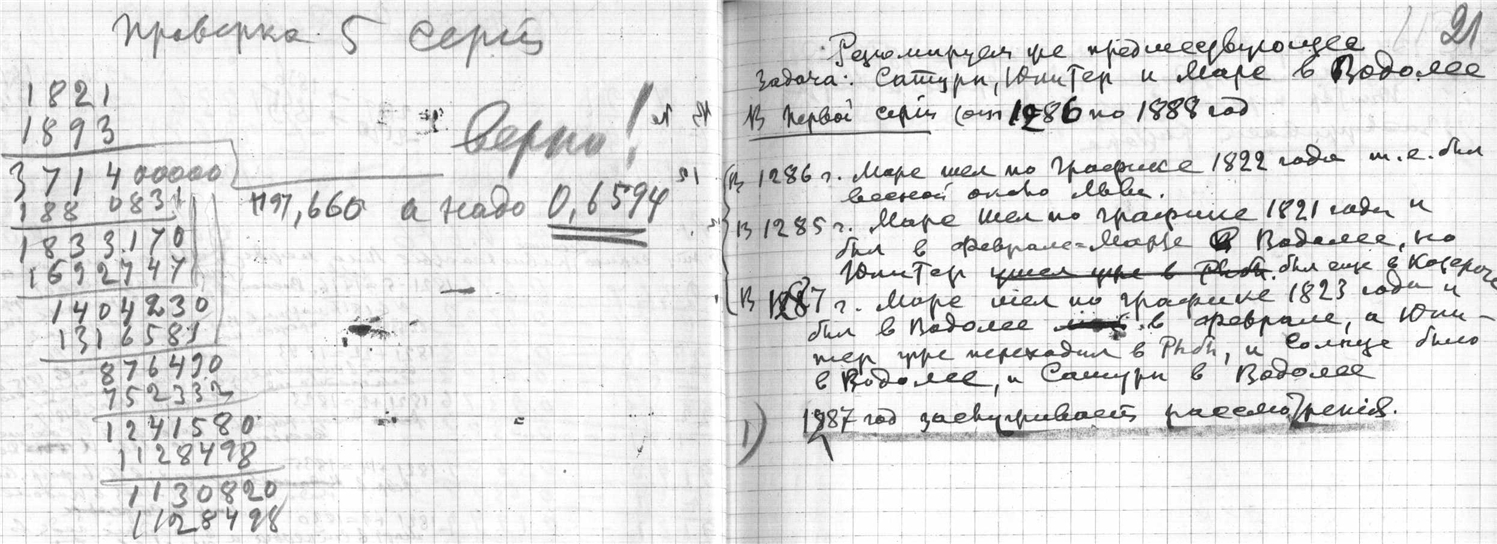 Проверка 5 серій
1821
1893
Верно!
3714 00000
188 0831
197,660 а надо 0,6594
1833170
1692747
1404230
1316581
876490
752332
1241580
1128498
1130820
1128498
21
Резюмируем же предшествующее
Задача: Сатурн, Юпитер и Марс в Водолее
В первой серіи (от 1286 по 1888 год
В 1286 г. Марс шел по графике 1822 года т.е. был
весной около Льва.
В 1285 г. Марс шел по графике 1821 года и
был в Феврале-Марте в Водолее, но
Юпитер ушел уже в был еще в Козероге
В 1287 г. Марс шел по графике 1823 года и
был в Водолее в феврале, а Юпи-
тер уже переходил в и Солнце было
в Водолее, и Сатурн в Водолее
1) 1287 год заслуживает разсмотренія.